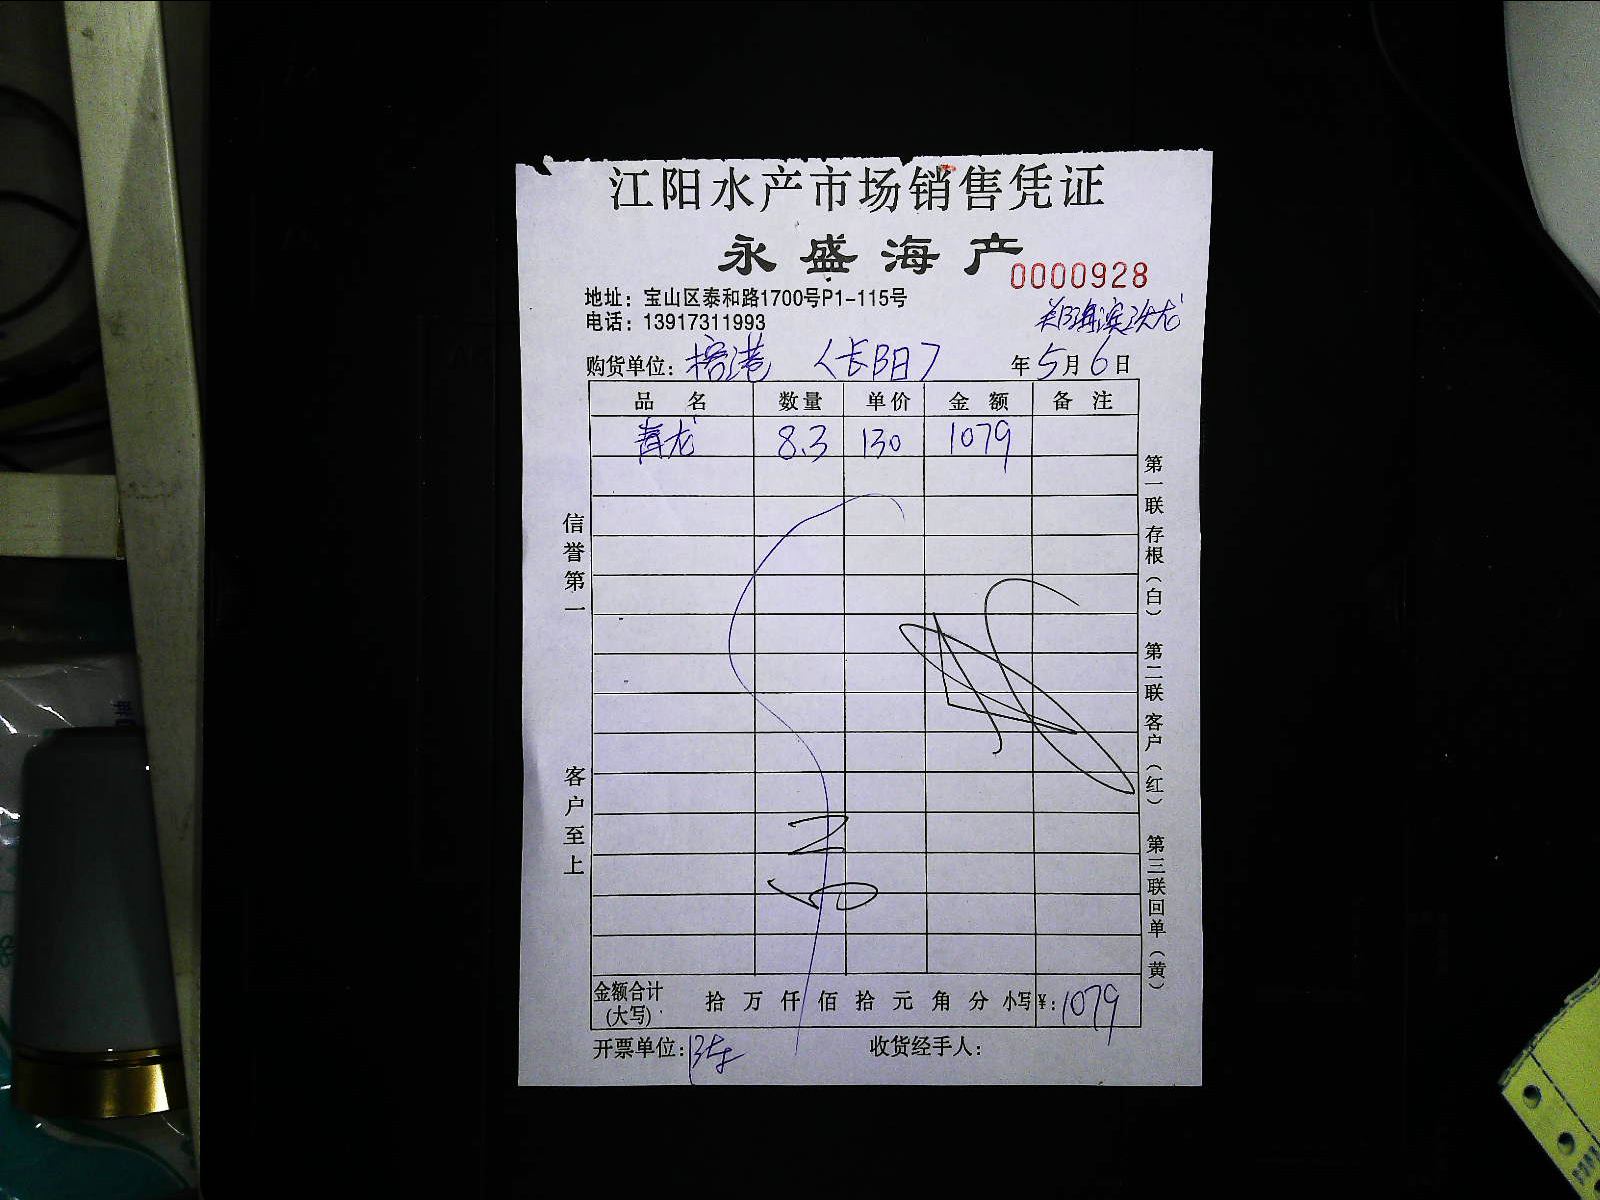 江阳水产市场销售凭证
永盛海产
0000928
地址：宝山区泰和路1700号P1-115号
电话：13917311993
购货单位：榕港 〈长阳〉 年5月6日
品名 数量 单价 金额 备注
青龙 8.3 130 1079
信誉第一 客户至上
第一联存根（白） 第二联客户（红） 第三联回单（黄）
金额合计(大写) 拾万仟佰拾元角分 小写¥：1079
开票单位： 收货经手人：